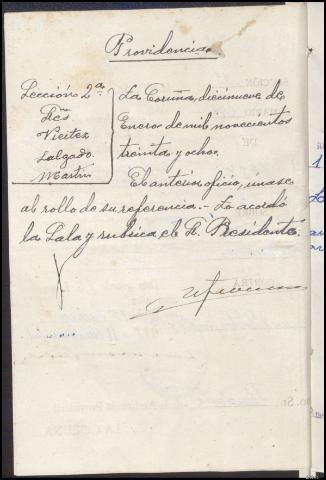 Providencia
Sección 2ª
Sres
Vieitez
Salgado
Martín
La Coruña, diecinueve de
Enero de mil novecientos
treinta y ocho.
El anterior oficio, únase
al rollo de su referencia.- Lo acordó
la Sala y rubrica el Sr. Presidente